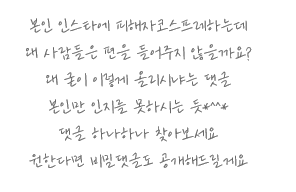 본인 인스타에 피해자코스프레하는데
왜 사람들은 편을 들어주지 않을까요?
왜 굳이 이렇게 올리시냐는 댓글
본인만 인지를 못하시는 듯*^^*
댓글 하나하나 찾아보세요
원한다면 비밀댓글도 공개해드릴게요